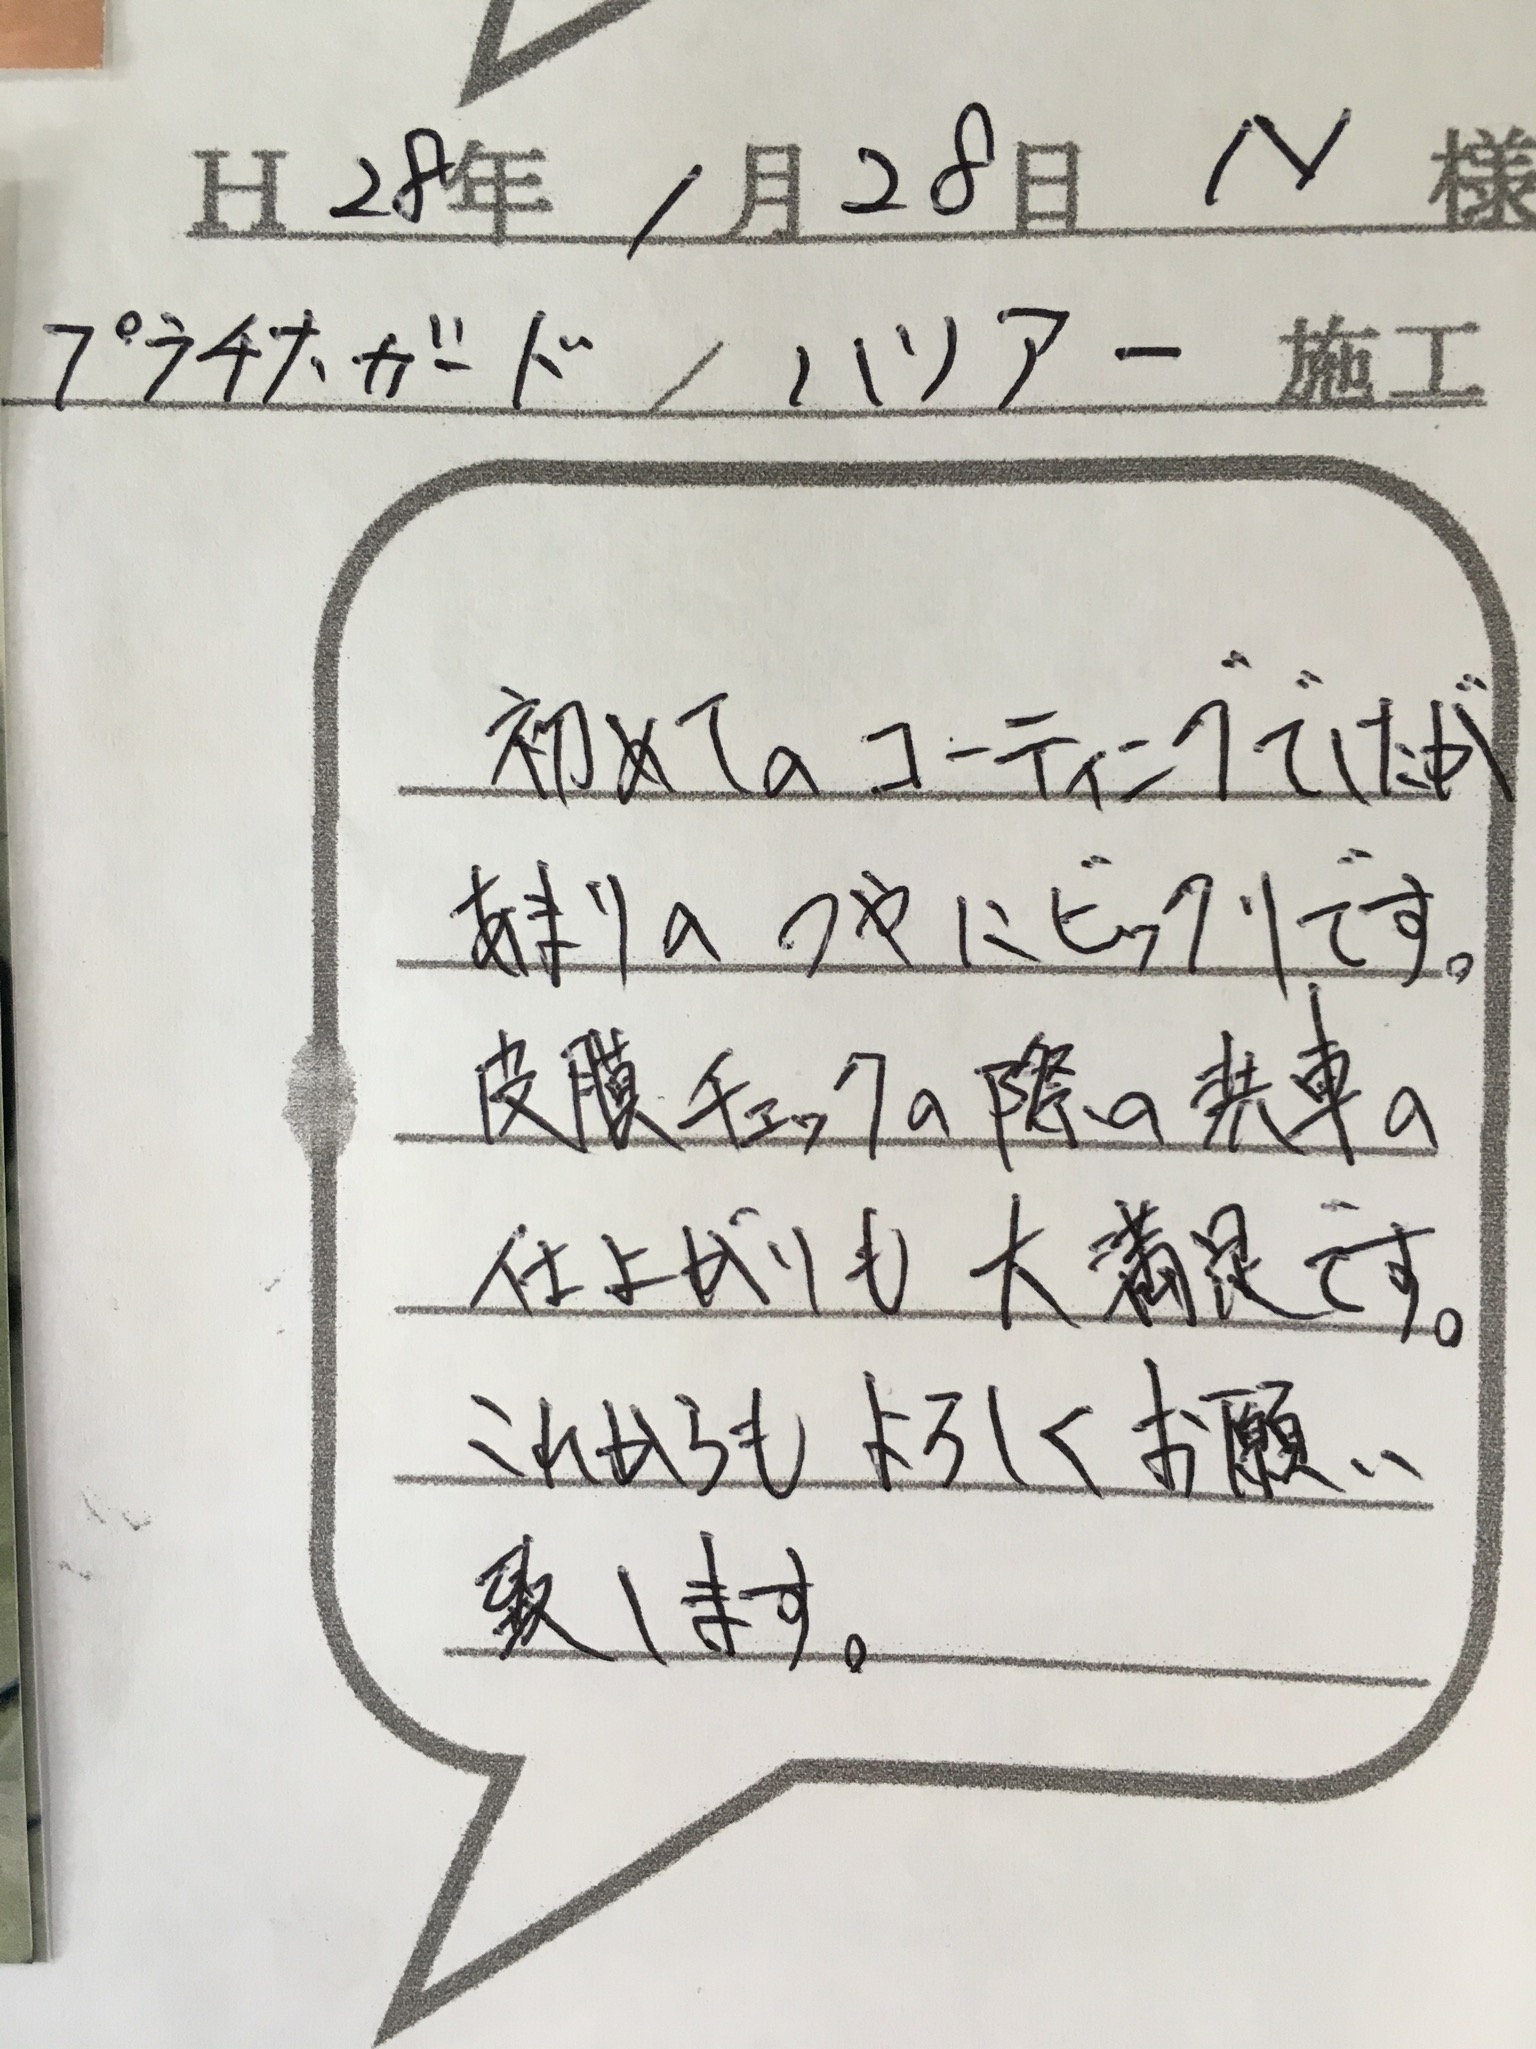 H 28年 1月 28日 N 様
プラチナガード / バリアー 施工
初めてのコーティングでしたが
あまりの つやにビックリです。
皮膜チェックの際の洗車の
仕上がりも 大満足です。
これからも よろしくお願い
致します。